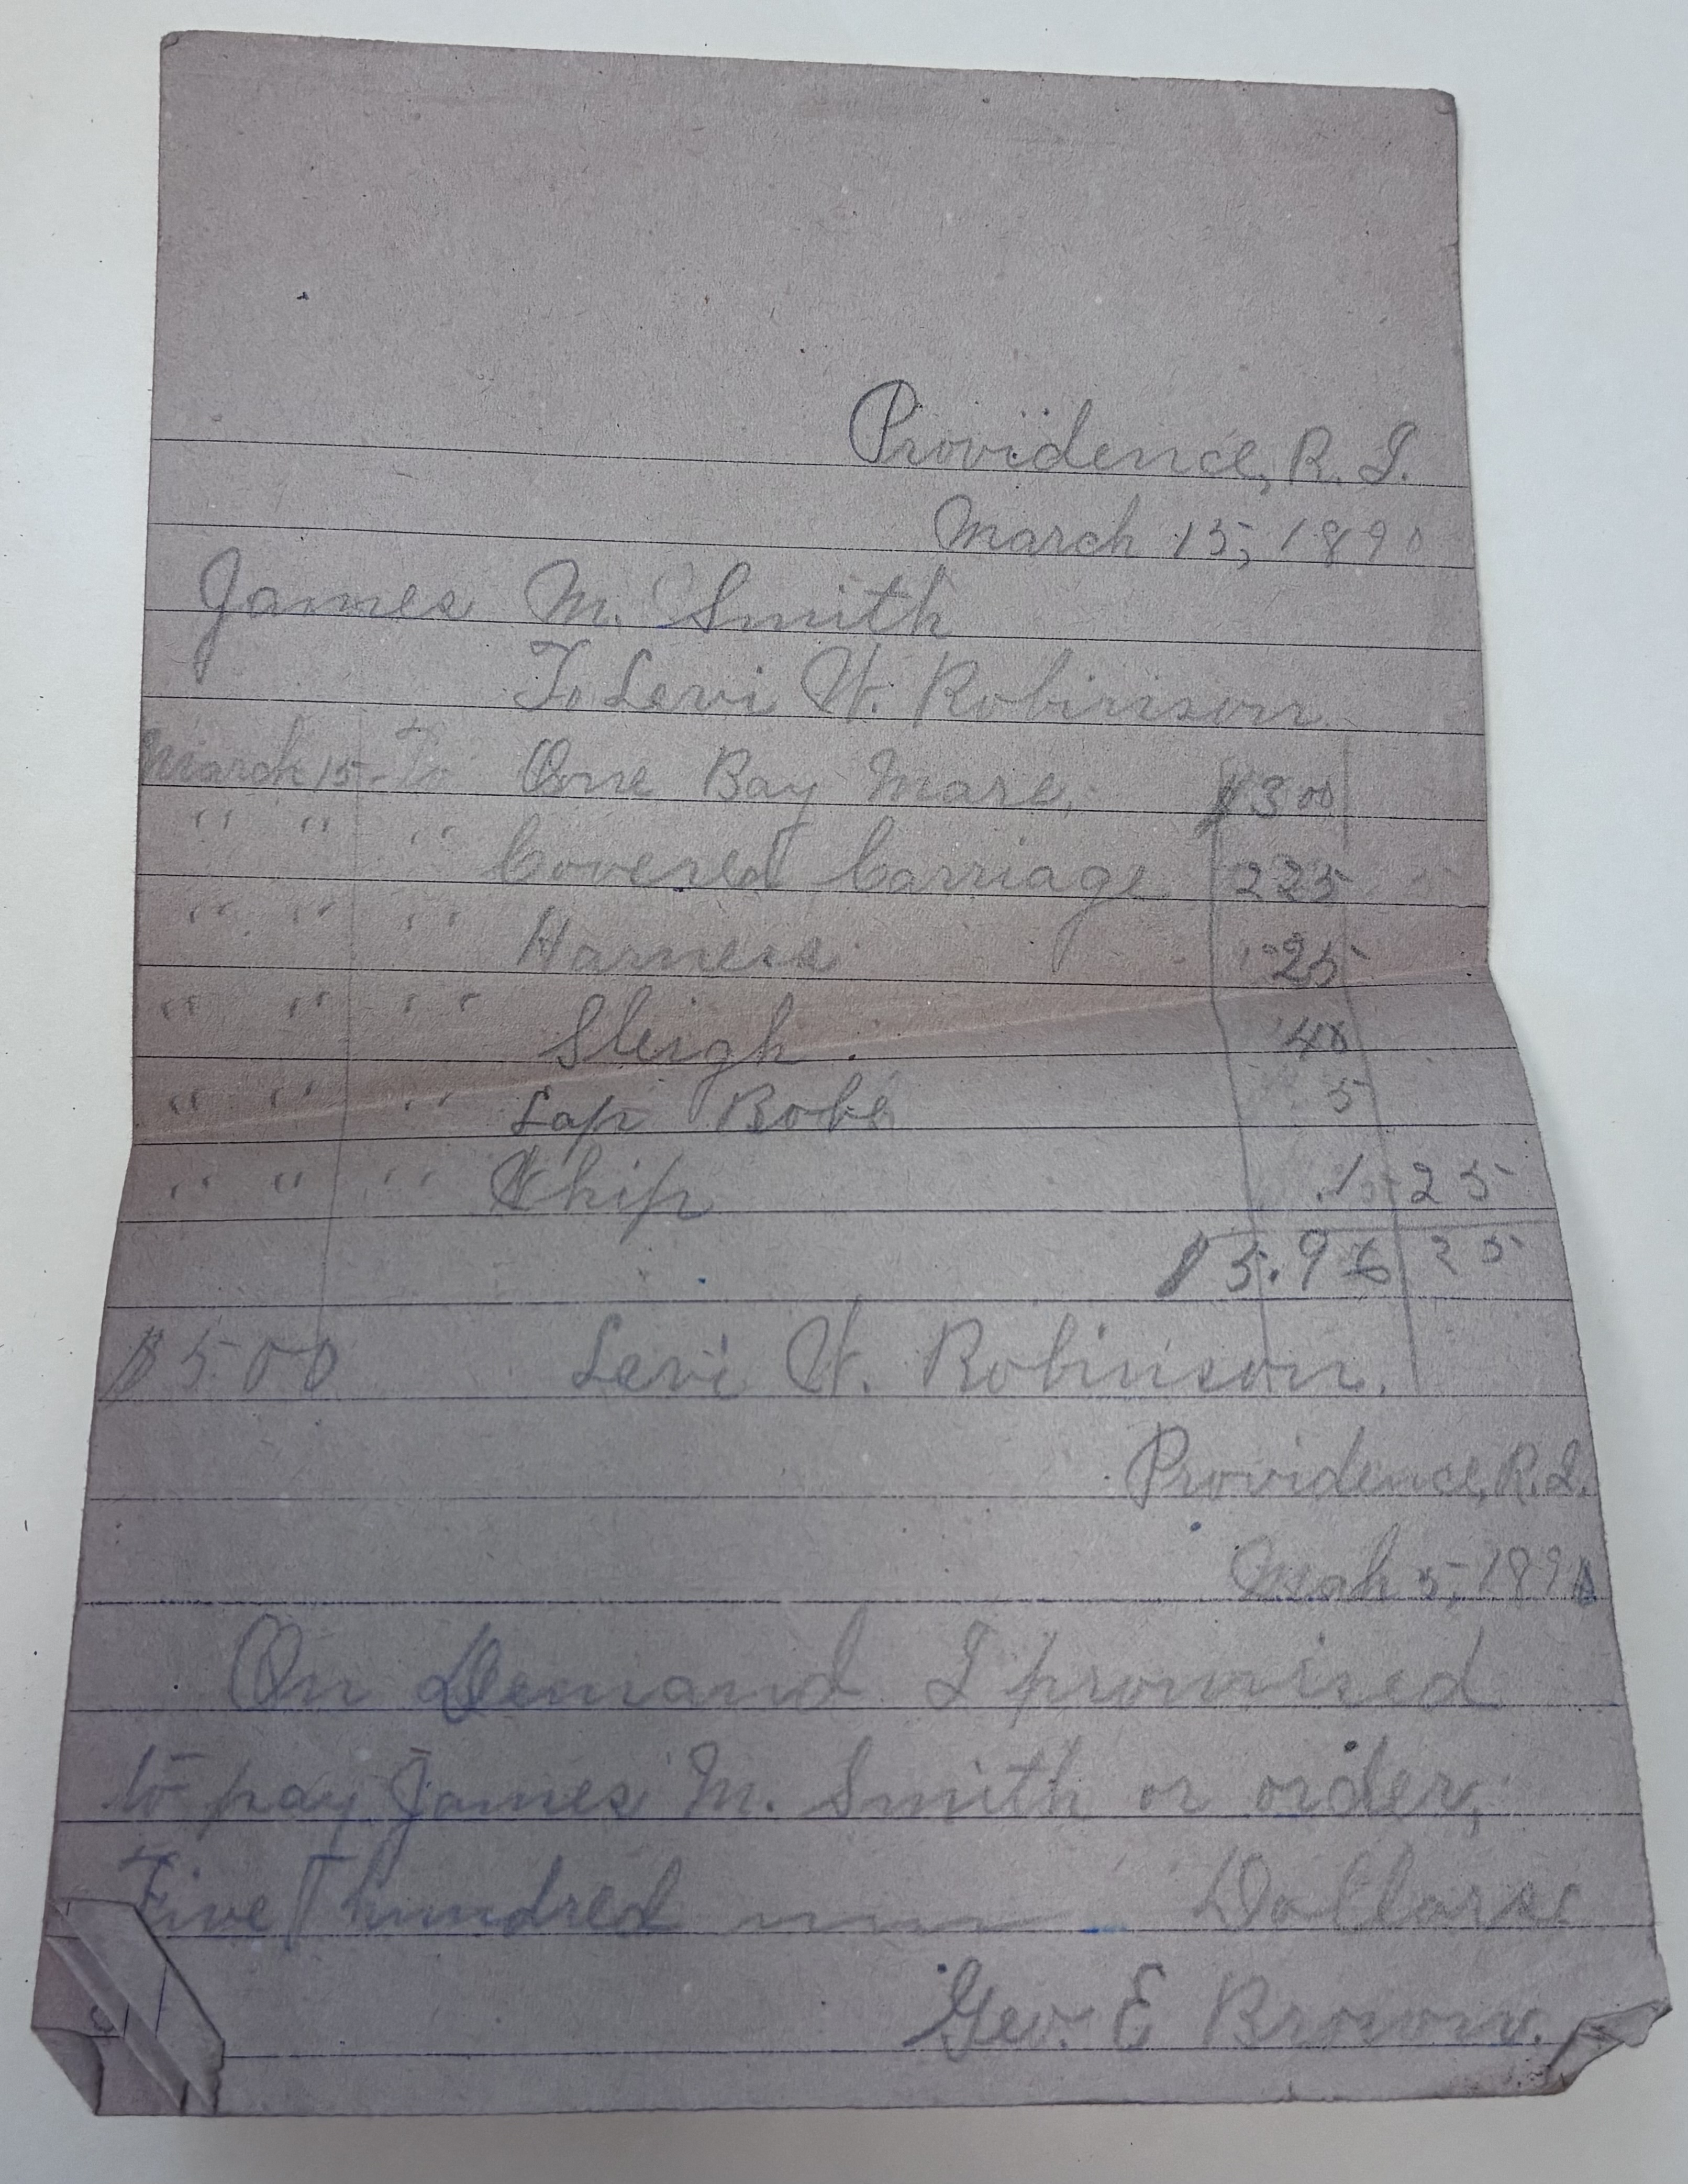 Providence, R. I.
March 15, 1890
James M. Smith
To Levi W. Robinson
March 15 - To One Bay Mare, $300
" " " Covered Carriage 225
" " " Harness 25
" " " Sleigh 40
" " " Lap Robe 5
" " " Whip 1 25
$5.96 25
$500 Levi W. Robinson.
Providence, R. I.
5, 1890
On Demand I promised
to pay James M. Smith or order,
Five hundred Dollars
Geo. E Brown.